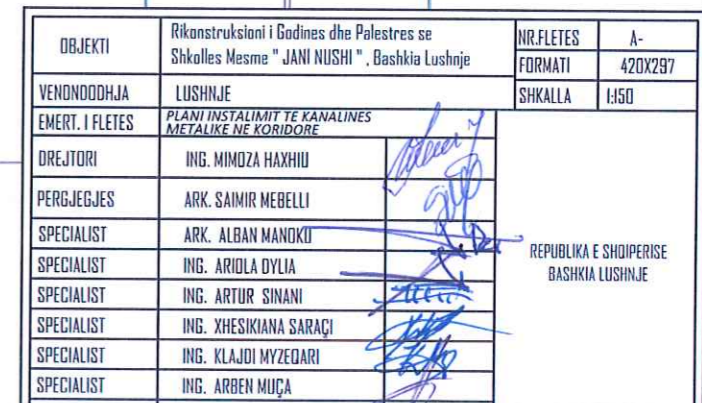 OBJEKTI
Rikonstruksioni i Godines dhe Palestres se
Shkolles Mesme " JANI NUSHI " , Bashkia Lushnje
NR.FLETES A-
FORMATI 420X297
VENDNDODHJA LUSHNJE
SHKALLA 1:150
EMERT. I FLETES
PLANI INSTALIMIT TE KANALINES
METALIKE NE KORIDORE
DREJTORI ING. MIMOZA HAXHIU
PERGJEGJES ARK. SAIMIR MEBELLI
SPECIALIST ARK. ALBAN MANOKU
SPECIALIST ING. ARIOLA DYLIA
SPECIALIST ING. ARTUR SINANI
SPECIALIST ING. XHESIKIANA SARAÇI
SPECIALIST ING. KLAJDI MYZEQARI
SPECIALIST ING. ARBEN MUÇA
REPUBLIKA E SHQIPERISE
BASHKIA LUSHNJE